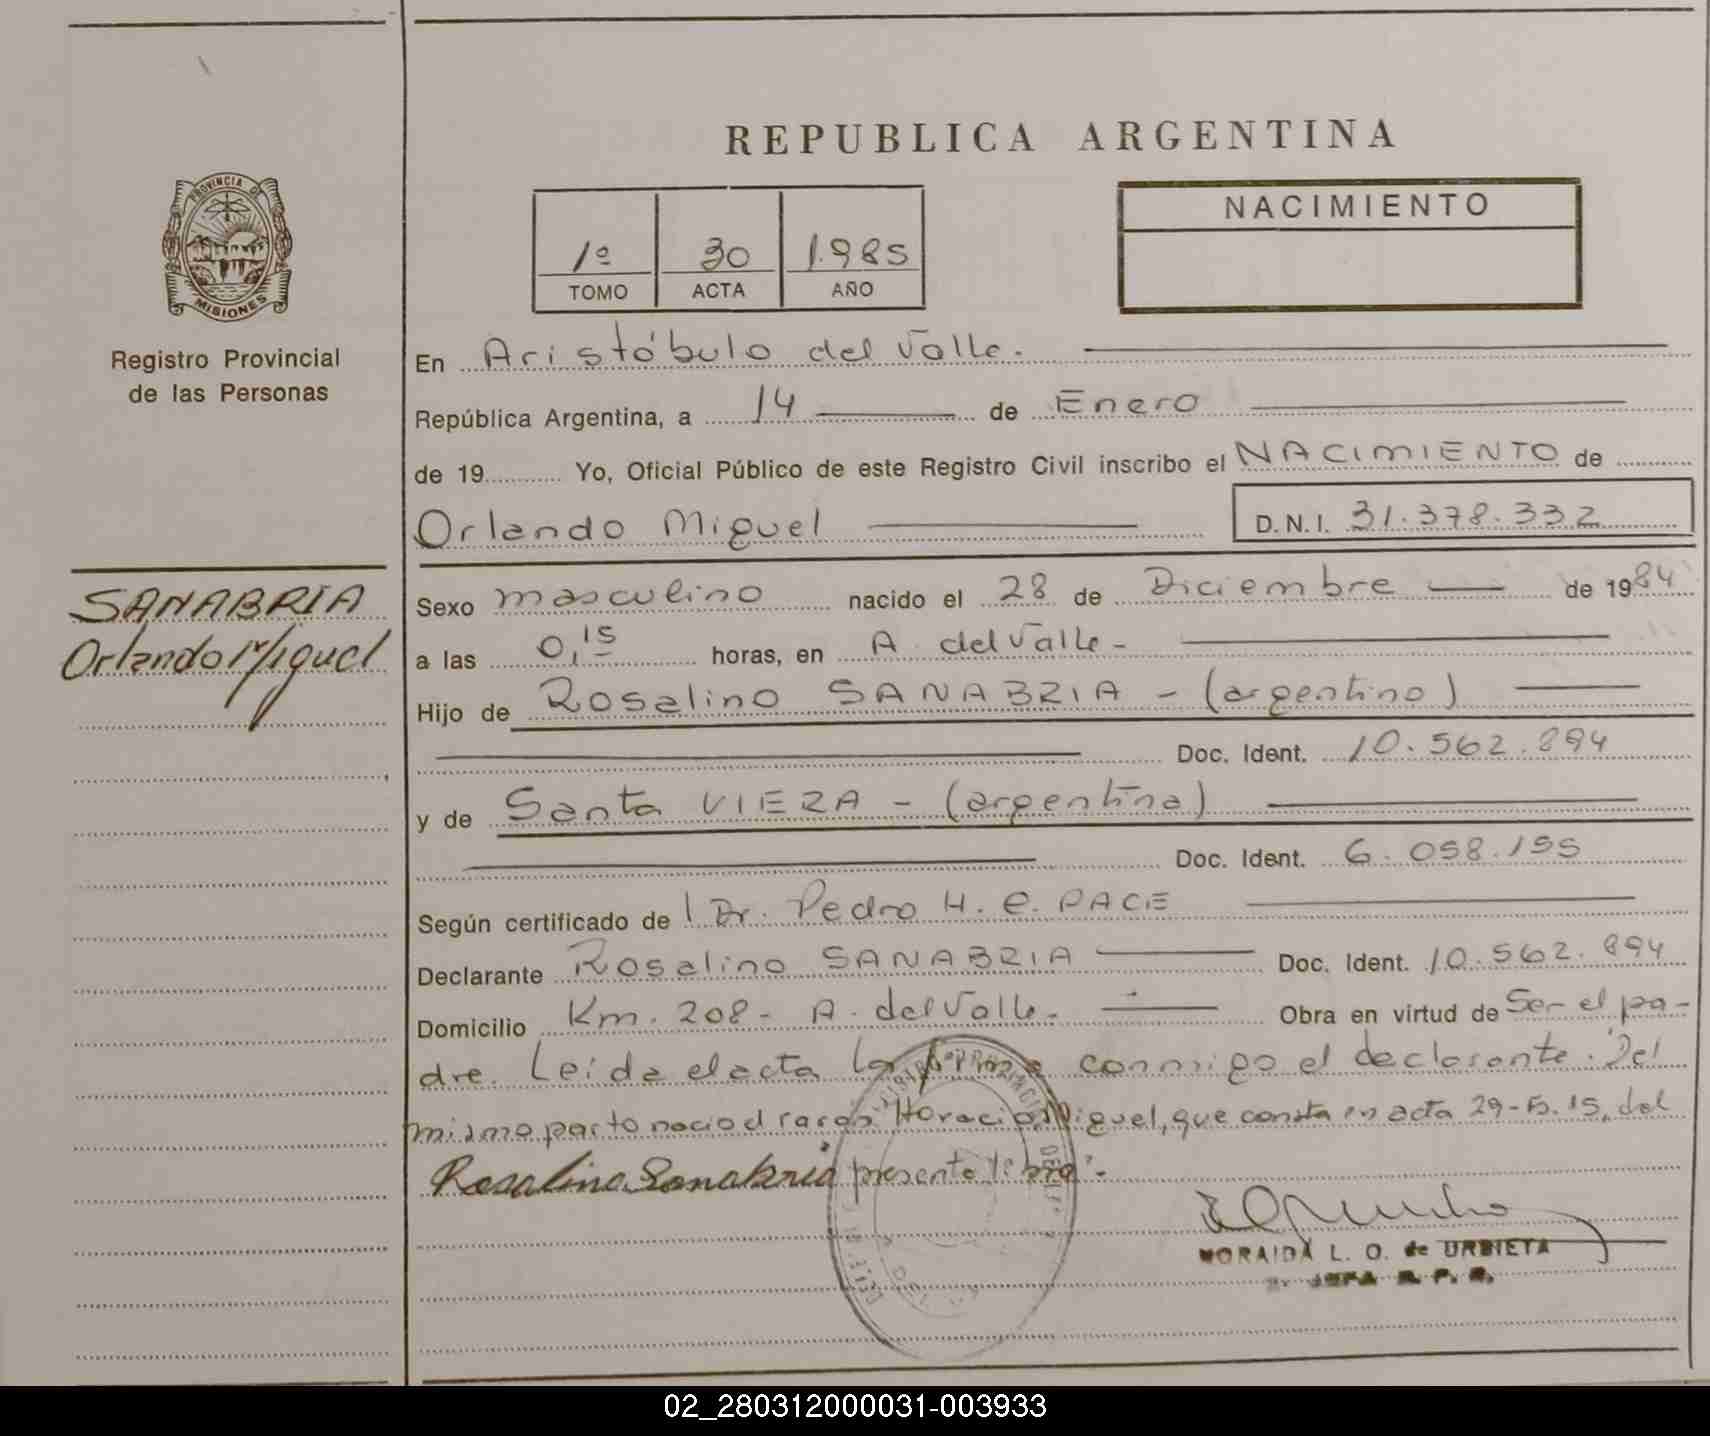 REPUBLICA ARGENTINA
PROVINCIA DE
MISIONES
Registro Provincial
de las Personas
1º 30 1.985
TOMO ACTA AÑO
NACIMIENTO
En Aristóbulo del Valle.
República Argentina, a 14 de Enero
de 19 Yo, Oficial Público de este Registro Civil inscribo el NACIMIENTO de
Orlando Miguel D.N.I. 31.378.332
SANABRIA
Orlando Miguel
Sexo masculino nacido el 28 de Diciembre de 1984
a las 0,15 horas, en A. del Valle -
Hijo de Rosalino SANABRIA - (argentino)
Doc. Ident. 10.562.894
y de Santa VIERA - (argentina)
Doc. Ident. 6.058.155
Según certificado de Dr. Pedro H. C. PACE
Declarante Rosalino SANABRIA Doc. Ident. 10.562.894
Domicilio Km. 208 - A. del Valle. Obra en virtud de Ser el pa-
dre. Leída el acta la firma conmigo el declarante. Del
mismo parto nació d varón Horacio Miguel, que consta en acta 29 - 15, del
Rosalino Sanabria presente libro.-
NORAIDA L. O. de URBIETA
JEFA R. P. P.
02_280312000031-003933